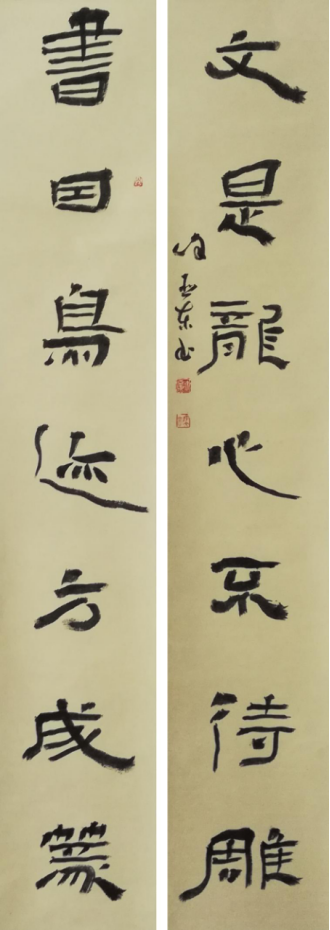 書因鳥迹方成篆
文是龍心不待雕
亞東书